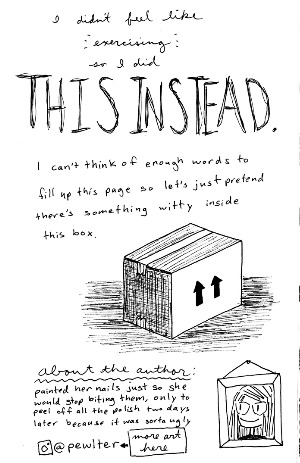 I didn't feel like
exercising
so I did
THIS INSTEAD.
I can't think of enough words to
fill up this page so let's just pretend
there's something witty inside
this box.
about the author:
painted her nails just so she
would stop biting them, only to
peel off all the polish two days
later because it was sorta ugly
@pewlter
more art
here